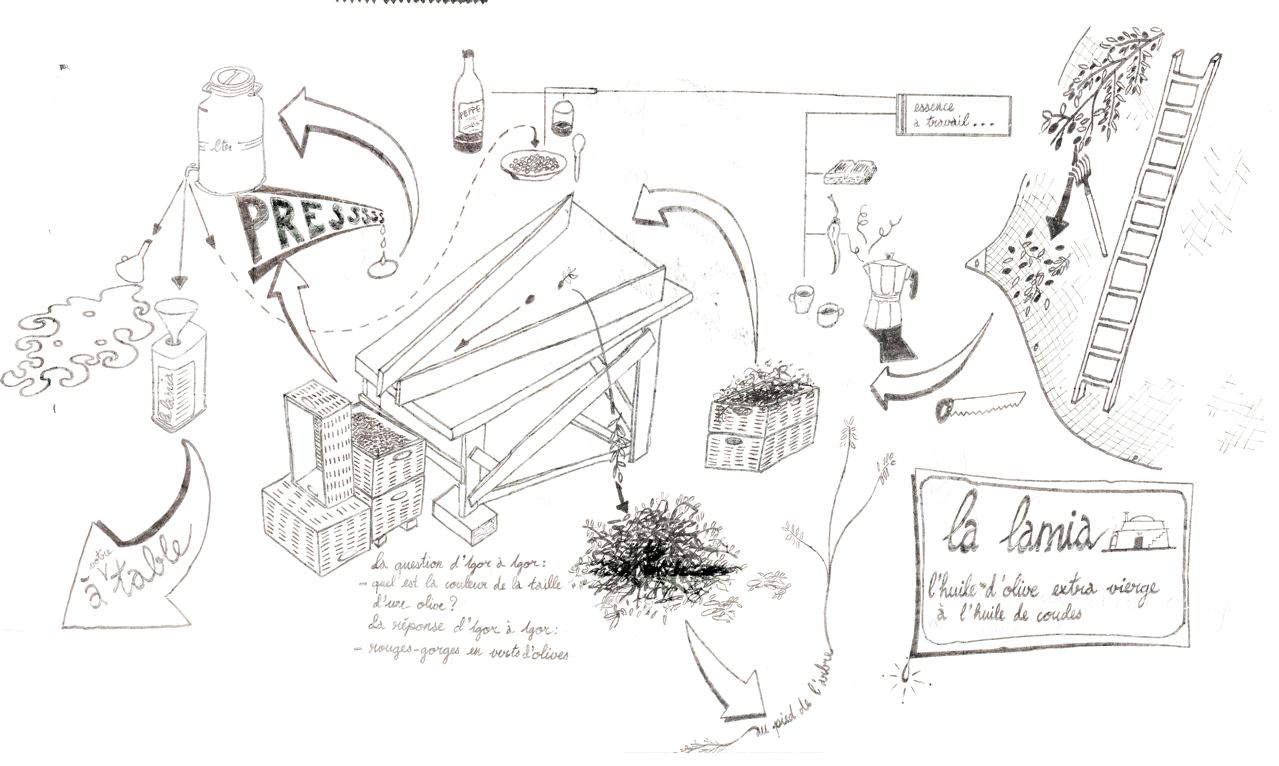 PEPPE
essence
à travail...
PRESSSSS
à votre table
La question d'Igor à Igor:
- quel est la couleur de la taille
d'une olive ?
La réponse d'Igor à Igor:
- rouges-gorges en verts d'olives
au pied de l'arbre
la lamia
l'huile d'olive extra vierge
à l'huile de coudes